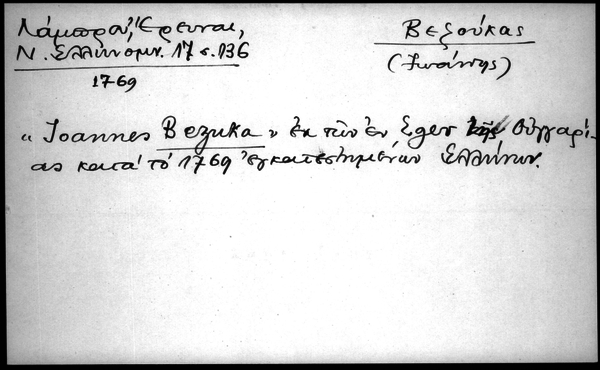 Λάμπρου, Ἔρευναι,
Ν. Ἑλληνομν. 17 σ. 136
1769
Βεζούκας
(Ἰωάννης)
"Joannes Bezuka" ἐκ τῶν ἐν Eger τῆς Οὑγγαρί-
ας κατὰ τὸ 1769 ἐγκατεστημένων Ἑλλήνων.